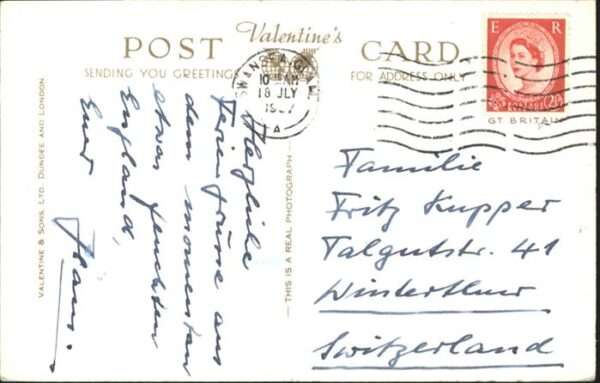 POST Valentine's CARD
SENDING YOU GREETINGS FOR ADDRESS ONLY
SWANSEA
10
18 JLY
A
E R
POSTAGE 2½D
GT BRITAIN
VALENTINE & SONS, LTD. DUNDEE AND LONDON
THIS IS A REAL PHOTOGRAPH
Herzliche
Feriengrüsse aus
dem momentan
etwas feuchten
England,
Euer
Hans.
Familie
Fritz Kupper
Talgutstr. 41
Winterthur
Switzerland